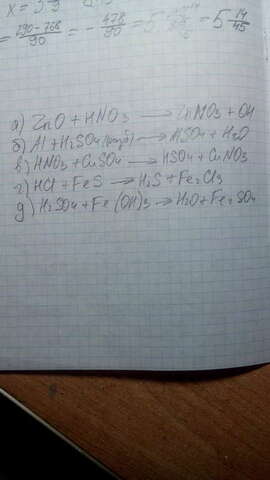 x = 5 9
= 290-768/90 = - 478/90 = 5 = 5 14/45
а) ZnO + HNO3 → ZnNO3 + OH
б) Al + H2SO4 (разб) → AlSO4 + H2O
в) HNO3 + CuSO4 → HSO4 + CuNO3
г) HCl + FeS → H2S + Fe2Cl3
д) H2SO4 + Fe(OH)3 → H2O + Fe2SO4